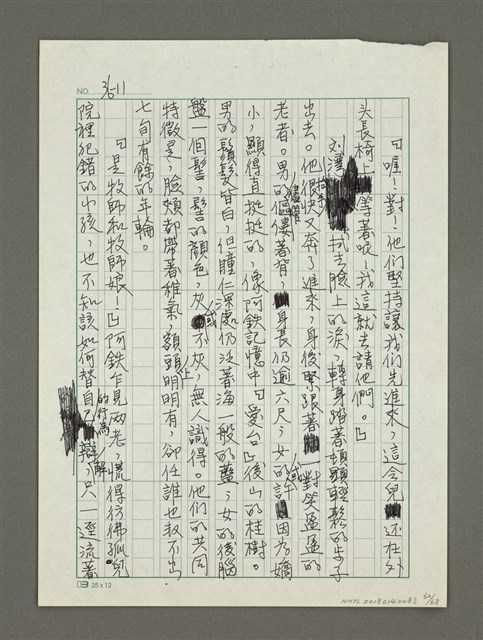 NO. 3/5-11
「喔！對！他們堅持讓我們先進來，這會兒還在外
头長椅上等著呢！我這就去請他們。」
刘漢拭去臉上的淚，轉身踏著頓顯輕鬆的步子
出去。他很快又奔了進來，身後緊跟著一對笑盈盈的
老者。男的儘管傴僂著背，身長仍逾六尺；女的或許因為嬌
小，顯得直挺挺的，像阿鉄記憶中「愛台」後山的桂樹。
男的鬚髮皆白，但瞳仁深處仍泛著海一般的藍；女的後腦
盤一個髻，髻的顏色，灰或不灰，無人識得。他們的共同
特徵是，臉頰都帶著稚氣，額頭上明明有，卻任誰也数不出
七旬有餘的年輪。
「是牧師和牧師娘！」阿鉄乍見兩老，慌得彷彿孤兒
院裡犯錯的小孩，也不知該如何替自己的行為辯解，只一逕流著
25×12
NMTL20180140083 60/68